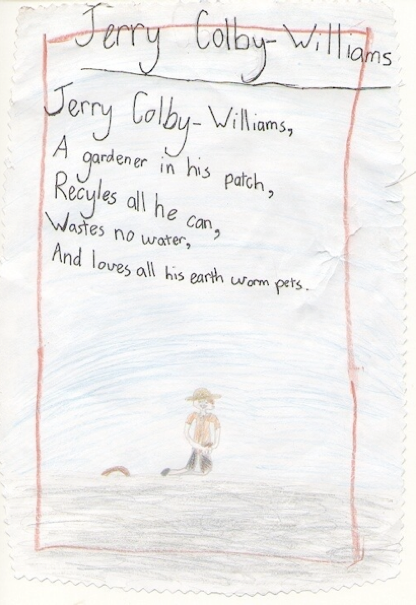 Jerry Colby-Williams
Jerry Colby-Williams,
A gardener in his patch,
Recyles all he can,
Wastes no water,
And loves all his earth worm pets.